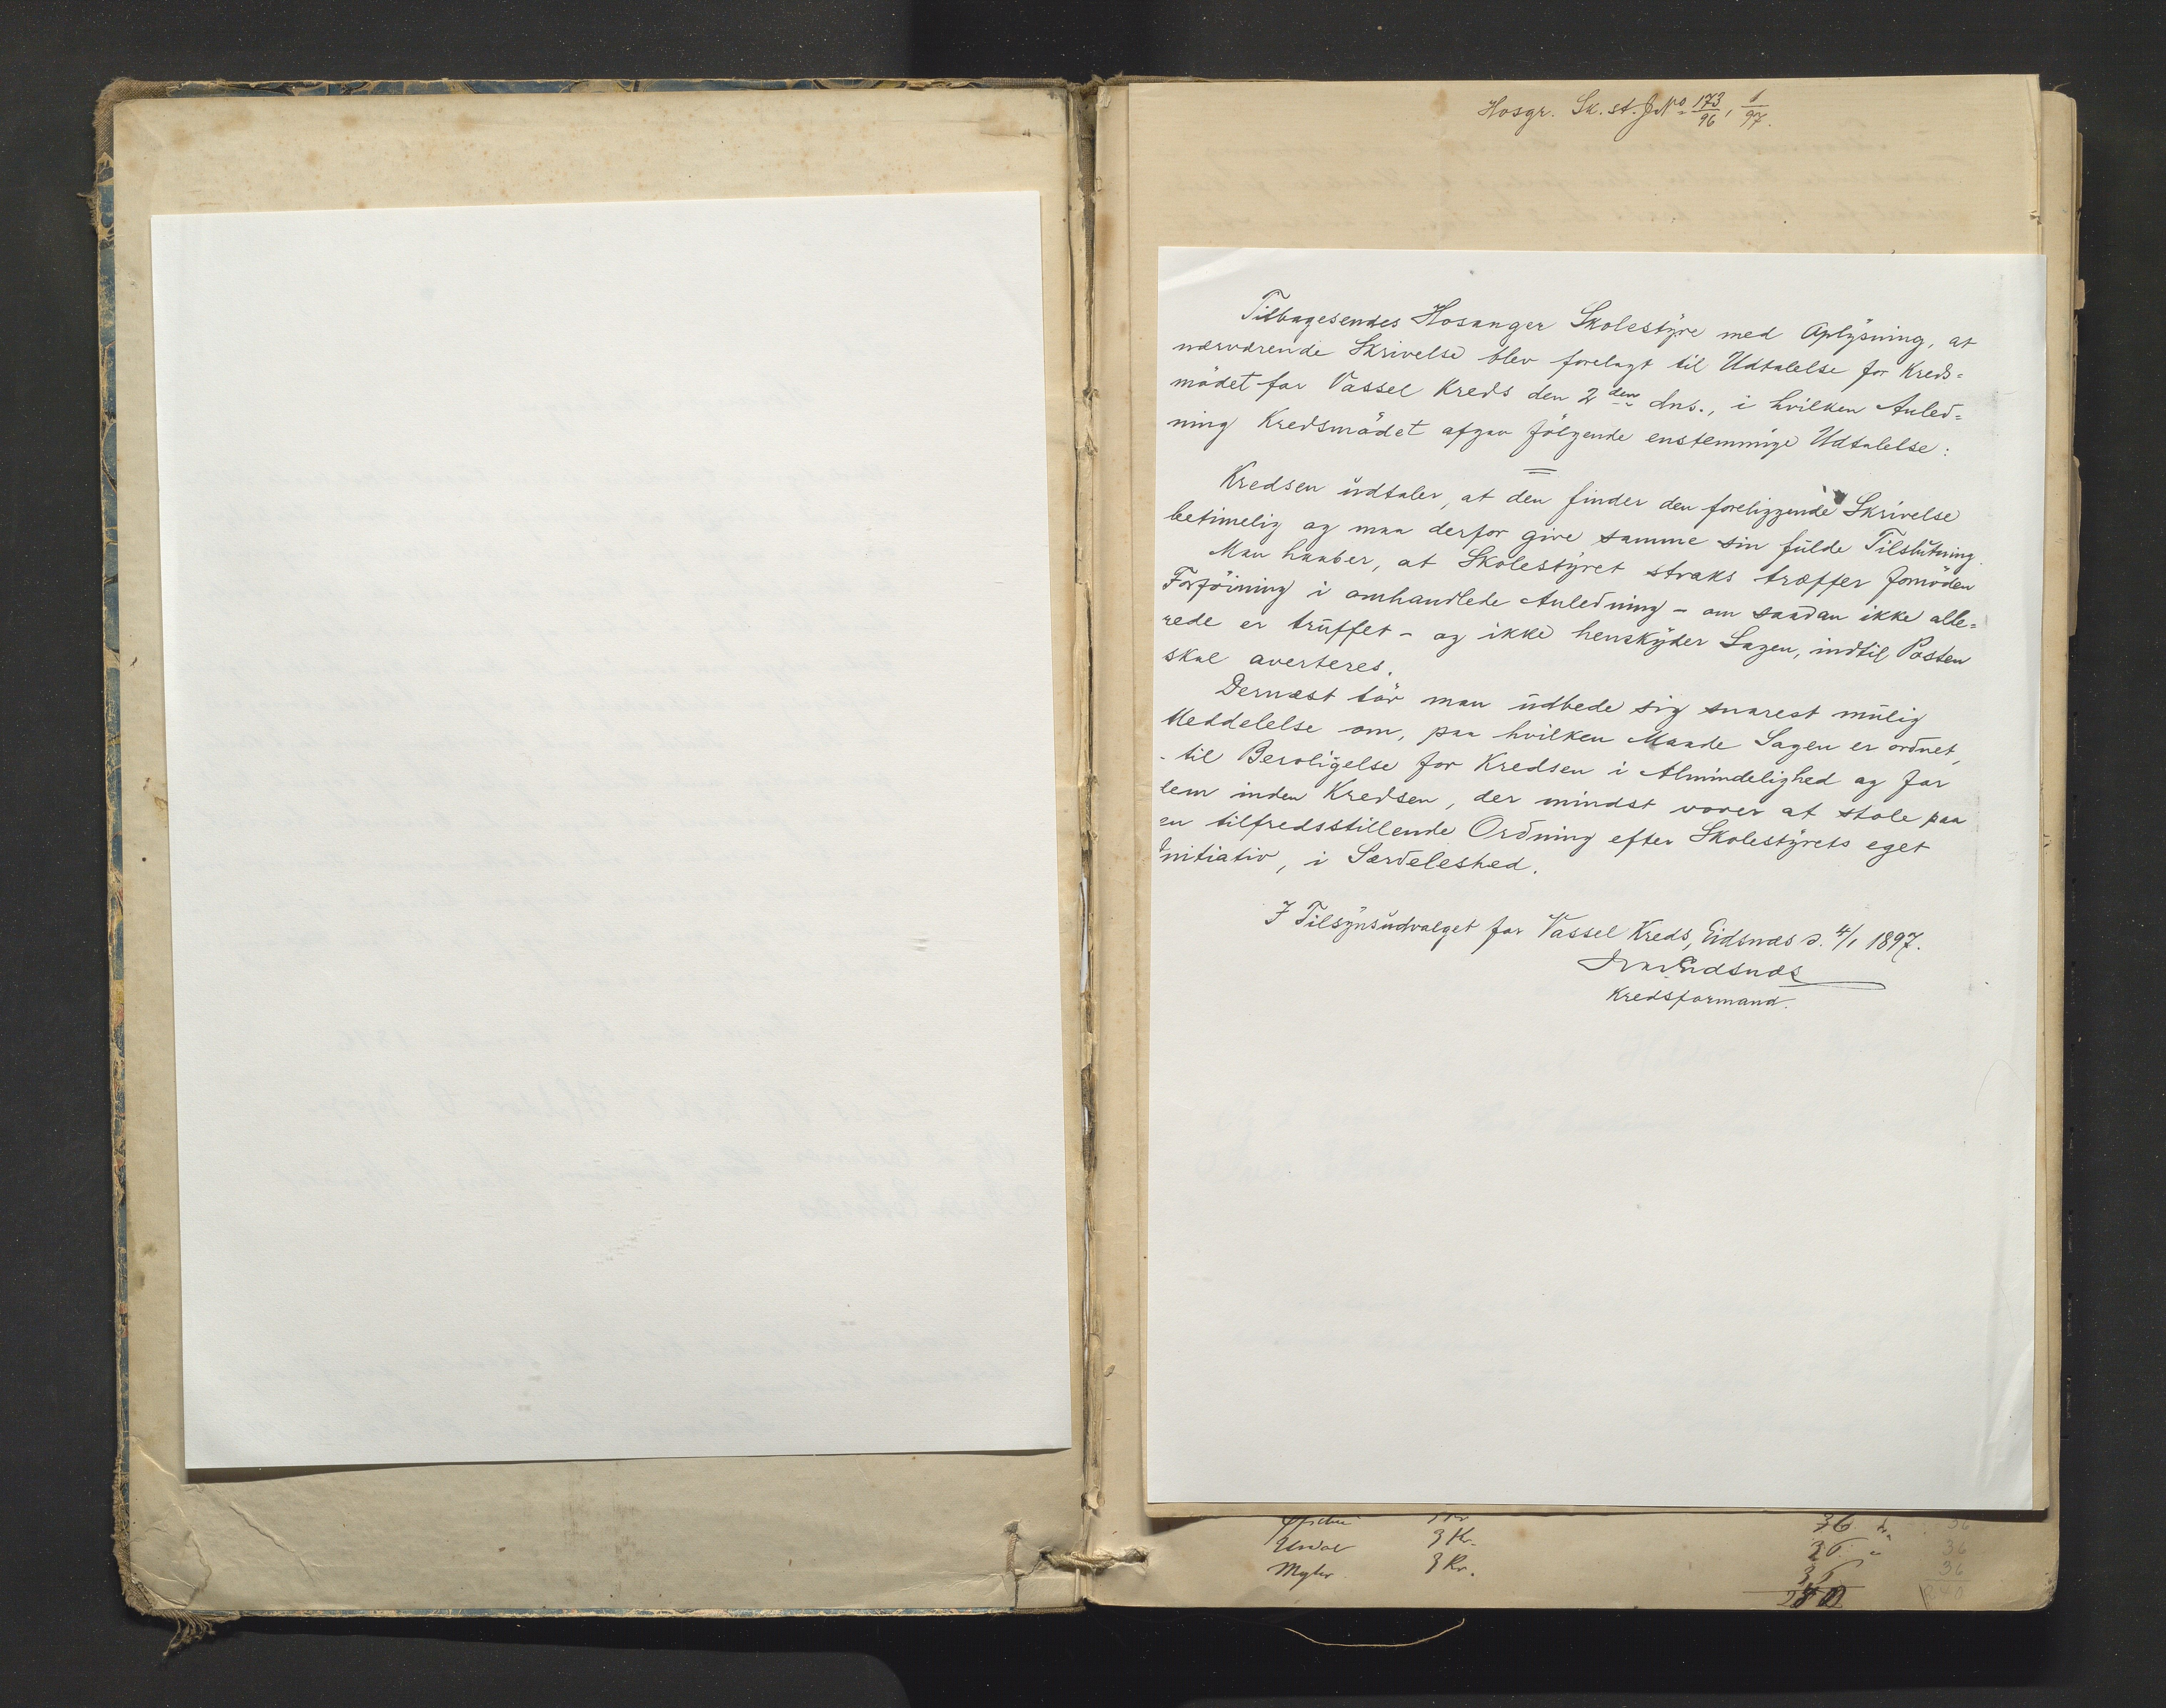 Hosgr. Sk. st. J. No 173/96, 1/97.
Tilbagesendes Hosanger Skolestyre med Oplysning, at
nærværende Skrivelse blev forelagt til Udtalelse for Kreds=
mödet for Vassel Kreds den 2den dns., i hvilken Anled=
ning Kredsmödet afgav følgende enstemmige Udtalelse:
Kredsen udtaler, at den finder den foreliggende Skrivelse
betimelig og maa derfor give samme sin fulde Tilslutning.
Man haaber, at Skolestyret straks træffer fornöden
Forföining i omhandlede Anledning - om saadan ikke alle=
rede er truffet - og ikke henskyder Sagen, indtil Posten
skal averteres.
Dernæst tör man udbede sig snarest mulig
Meddelelse om, paa hvilken Maade Sagen er ordnet,
- til Beroligelse for Kredsen i Almindelighed og for
dem inden Kredsen, der mindst vover at stole paa
en tilfredsstillende Ordning efter Skolestyrets eget
Initiativ, i Særdeleshed.
I Tilsynsudvalget for Vassel Kreds, Eidsnæs d. 4/1 1897.
Ivar Eidsnæs
Kredsformand.
3 Kr. 36
3 Kr. 36
280